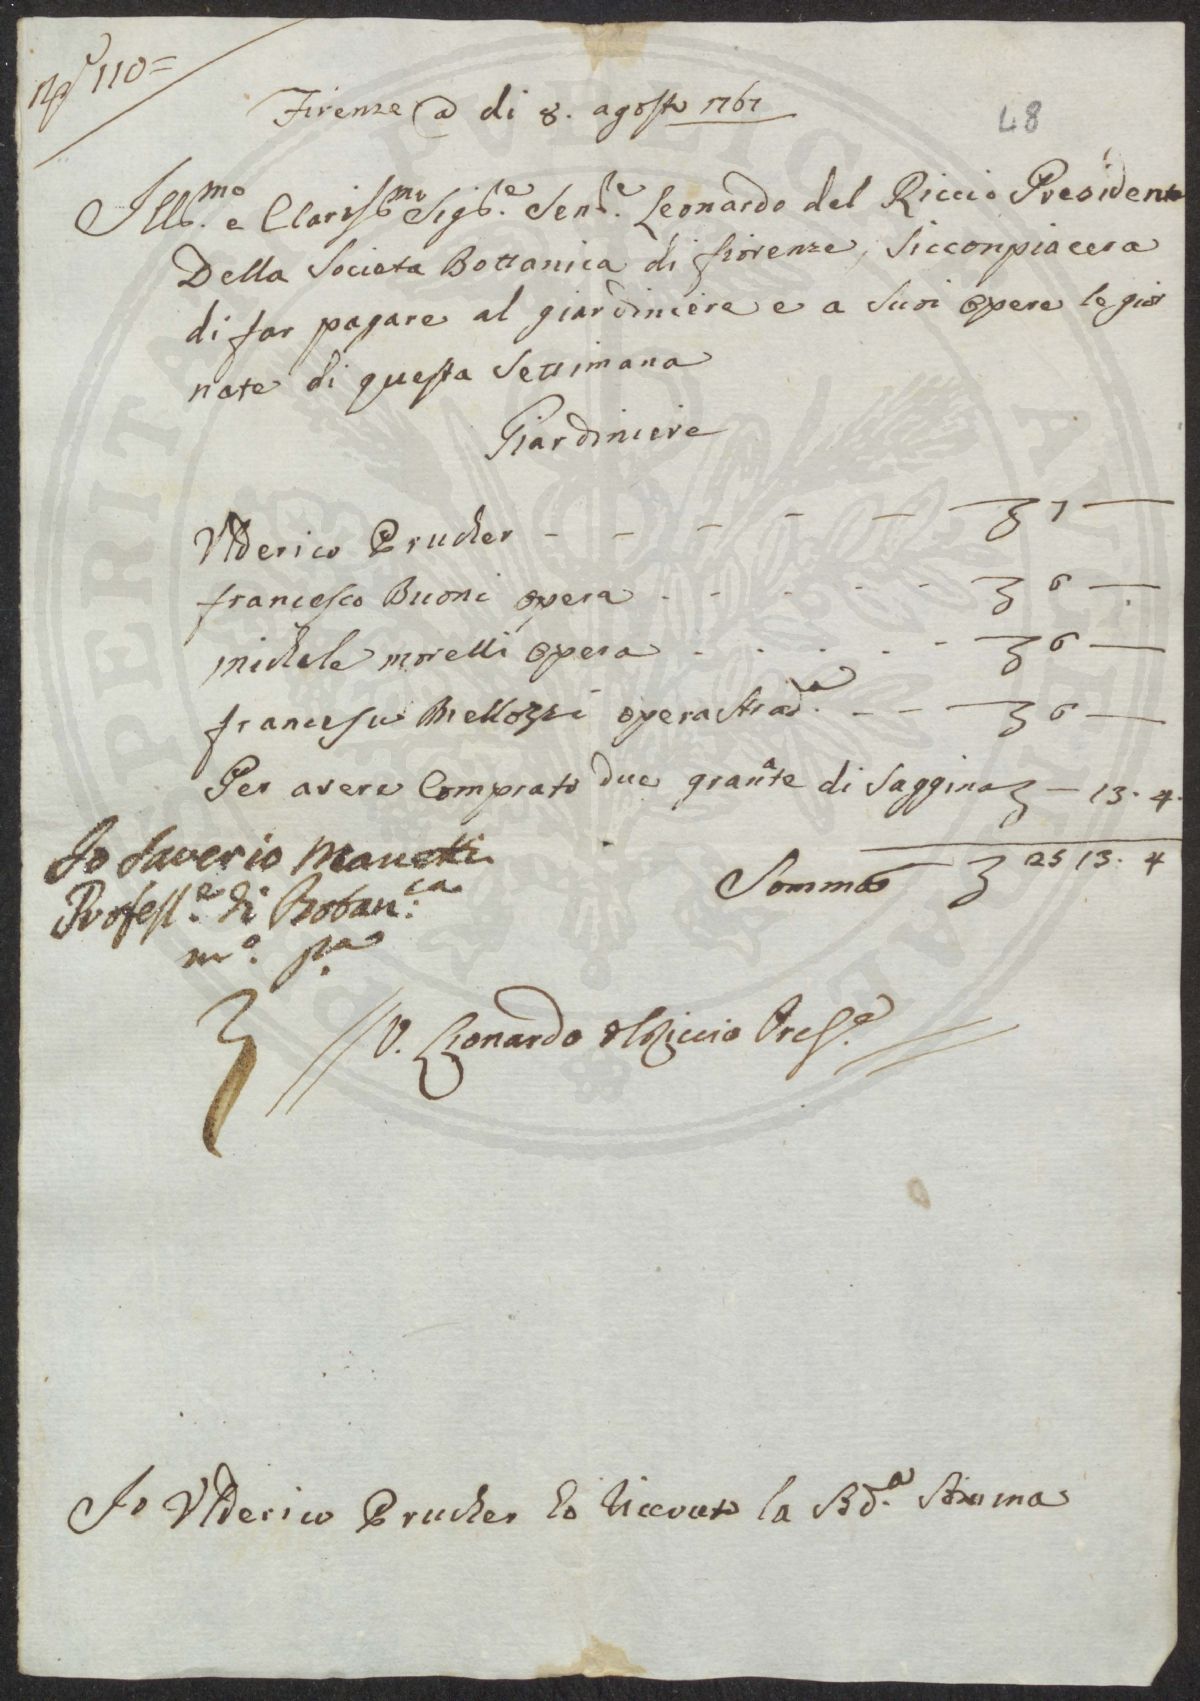 N.° 110=
48
Firenze a di 8. agosto 1767
Ill.mo e Claris.mo Sig.re Sen.re Leonardo del Riccio Presidente
Della Societa Bottanica di fiorenze, Siccompiacera
di far pagare al giardiniere e a suoi opere le gior
nate di questa Settimana
Giardiniere
Ulderico Prucher - - - - - £ 7 —
francesco Buoni opera - - - - - £ 6 —
michele morelli opera - - - - - £ 6 —
francesco Mellozzi opera strad.a - - - £ 6 —
Per avere Comprato due granate di Saggina £ — 13. 4.
Somma £ 25 13. 4
Io Saverio Manetti
Profess.e di Botan.ca
m.o p.a
V. Leonardo del Riccio Pres.e
Io Ulderico Prucher ho riceuto la Sd.a Somma
PERITA PVBLICAE FELICITATIS AVCTA